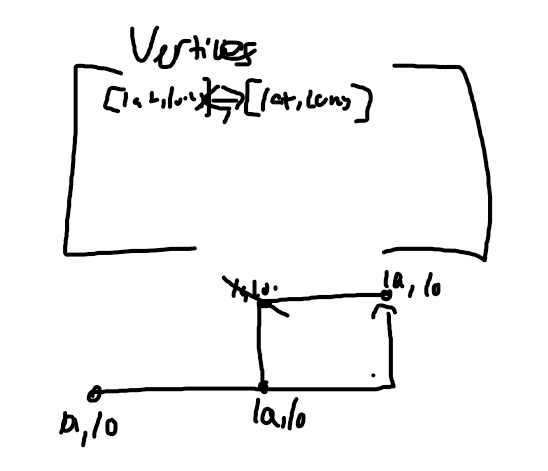 Vertives
[lat,lon] ⇔ [lat,long]
la,lo
la,lo
la,lo